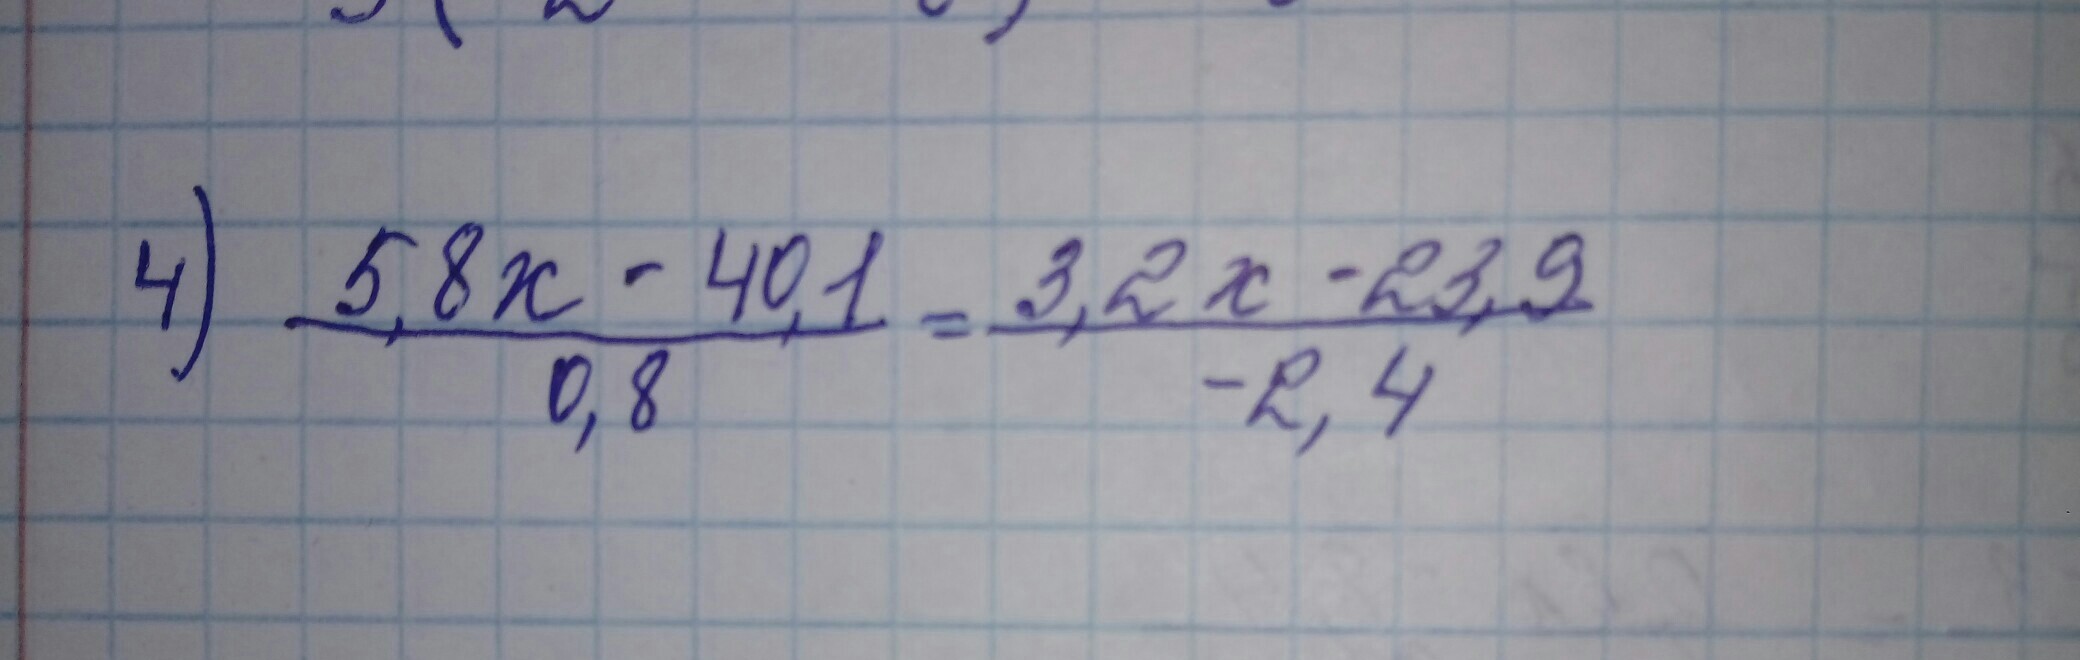 4) 5,8x - 40,1 = 3,2x - 23,9
0,8 -2,4